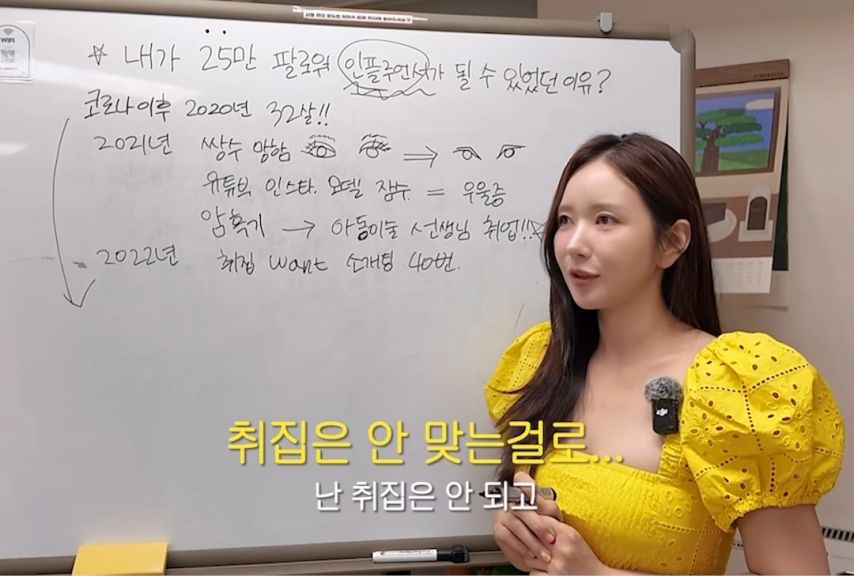 WiFi
☆ 내가 25만 팔로워 인플루언서가 될 수 있었던 이유?
코로나이후 2020년 32살!!
2021년 쌍수 망함 ⇒
유튜브 인스타. 모델 잠수. = 우울증
암흑기 → 아동미술 선생님 취업!!☆
2022년 취집 want 소개팅 40번.
취집은 안 맞는걸로...
난 취집은 안 되고
dji